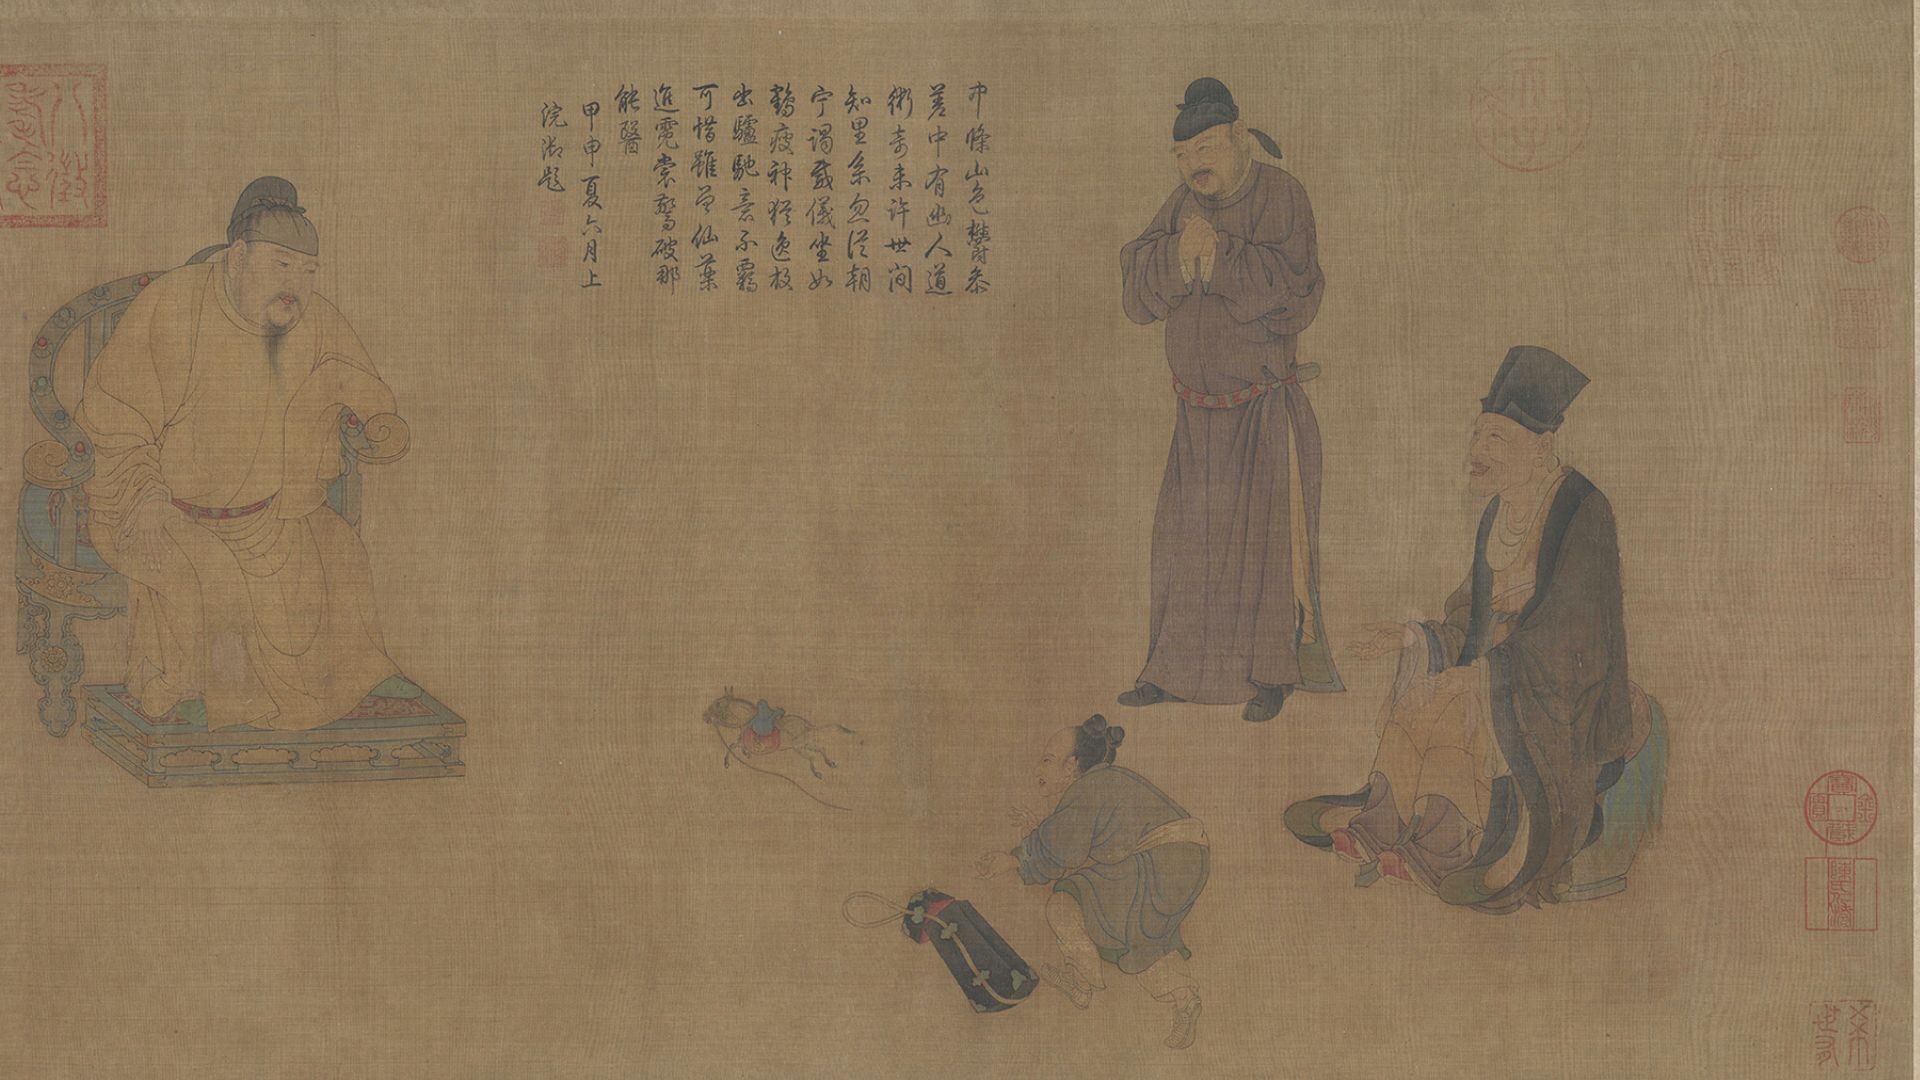 中條山色鬱參
差中有幽人道
術奇未許世間
知里系忽從朝
宁謁威儀坐如
鶴瘦神猶逸放
出驢馳意不羈
可惜雖曾仙藥
進霓裳驚破那
能醫
甲申夏六月上
浣御題
八徵
耄念